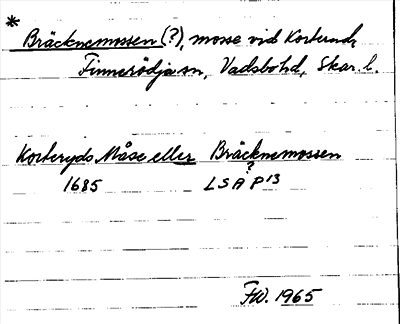 * Bräcknemossen (?), mosse vid Korterud,
Finnerödja sn, Vadsbo hd, Skar. l.
Korteryds Måse eller Bräcknemossen
?
1685 LSA P13
FW. 1965